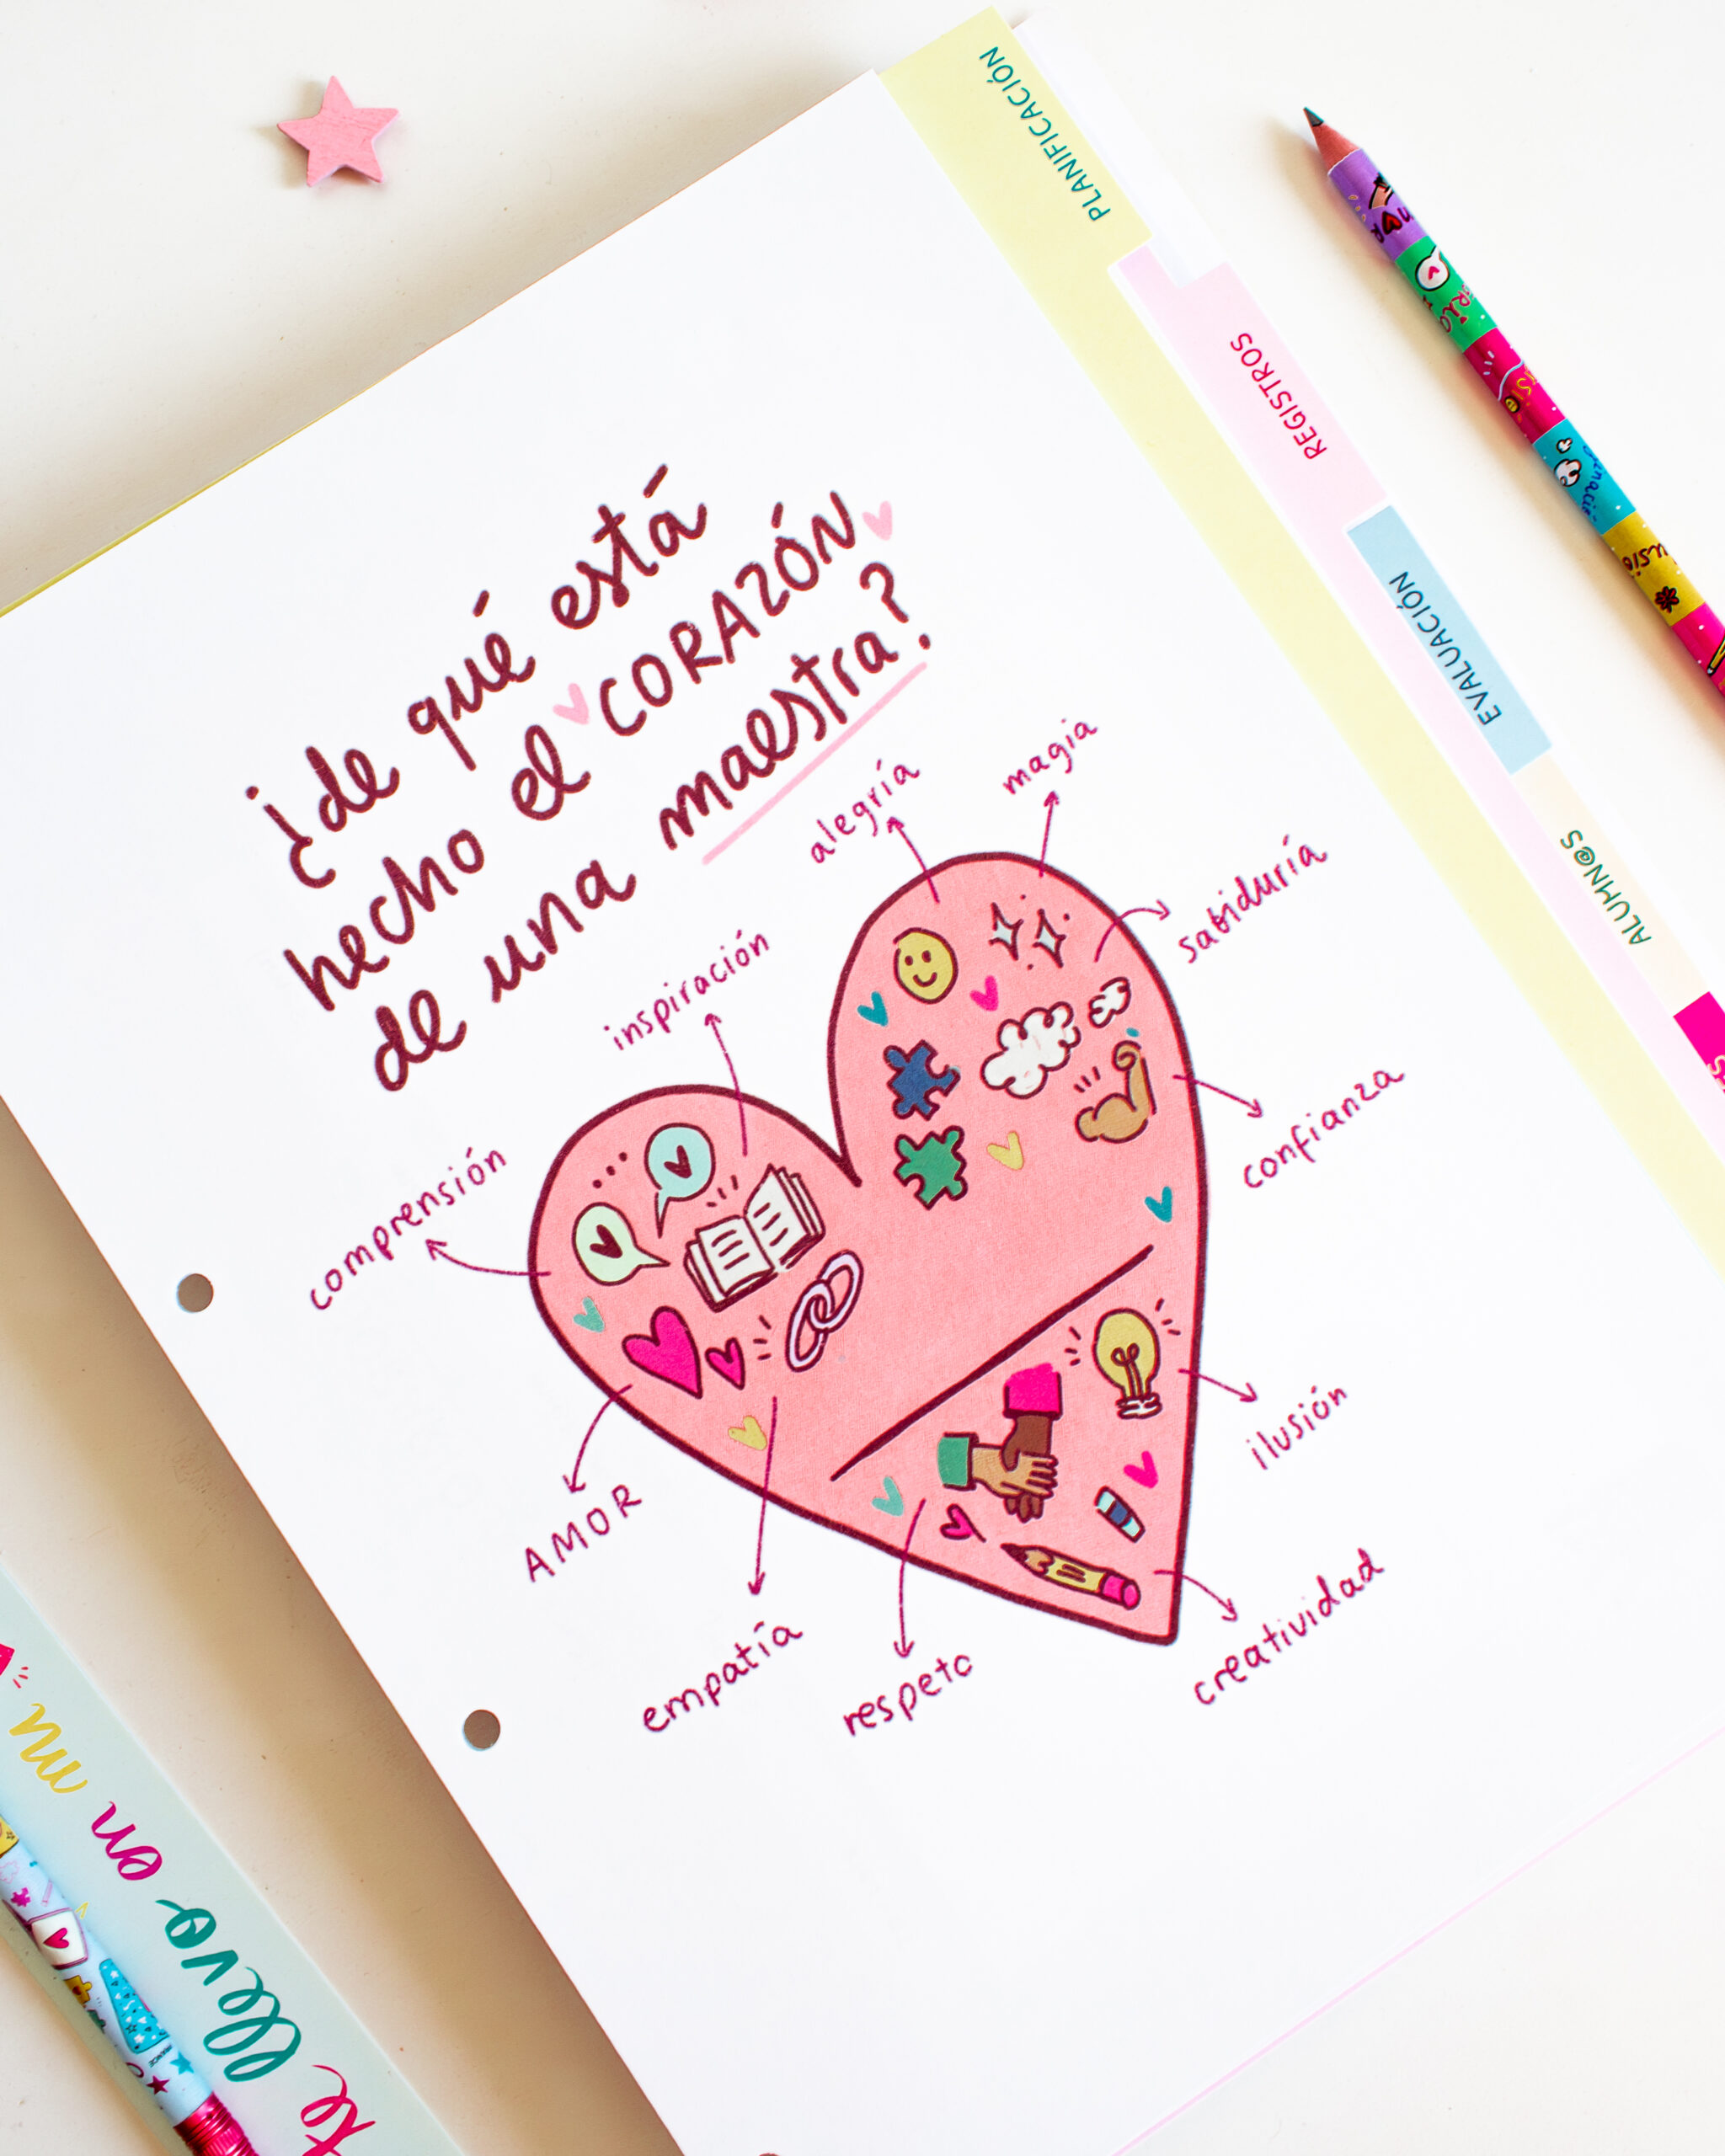 ¿de qué está
hecho el CORAZÓN
de una maestra?
alegría
magia
sabiduría
inspiración
confianza
comprensión
ilusión
AMOR
empatía
respeto
creatividad
PLANIFICACIÓN
REGISTROS
EVALUACIÓN
ALUMN@S
te llevo en mi